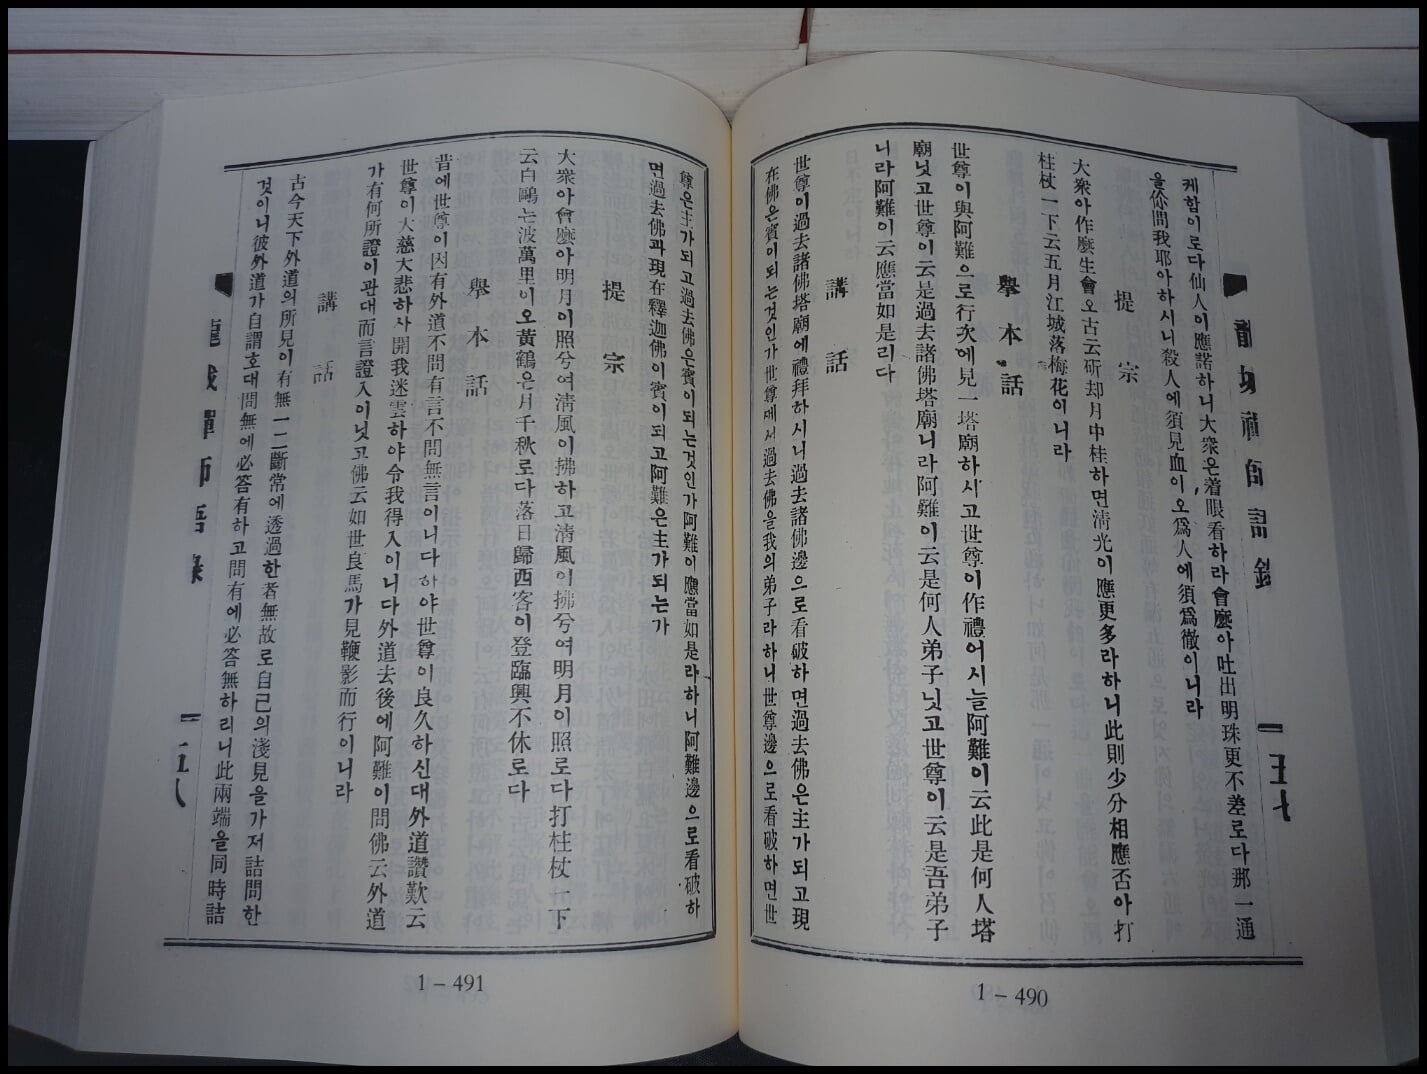 龍城禪師語錄
五七
케함이로다仙人이應諾하니大衆은着眼看하라會麽아吐出明珠更不差로다那一通
을你問我耶아하시니殺人에須見血이오爲人에須爲徹이니라
提宗
大衆아作麽生會오古云斫却月中桂하면淸光이應更多라하니此則少分相應否아打
柱杖一下云五月江城落梅花이니라
擧本話
世尊이與阿難으로行次에見一塔廟하시고世尊이作禮어시늘阿難이云此是何人塔
廟닛고世尊이云是過去諸佛塔廟니라阿難이云是何人弟子닛고世尊이云是吾弟子
니라阿難이云應當如是리다
講話
世尊이過去諸佛塔廟에禮拜하시니過去諸佛邊으로看破하면過去佛은主가되고現
在佛은賓이되는것인가世尊께서過去佛을我의弟子라하니世尊邊으로看破하면世
1-490
尊은主가되고過去佛은賓이되는것인가阿難이應當如是라하니阿難邊으로看破하
면過去佛과現在釋迦佛이賓이되고阿難은主가되는가
提宗
大衆아會麽아明月이照兮여淸風이拂하고淸風이拂兮여明月이照로다打柱杖一下
云白鷗는波萬里이오黃鶴은月千秋로다落日歸西客이登臨興不休로다
擧本話
昔에世尊이因有外道不問有言不問無言이니다하야世尊이良久하신대外道讚歎云
世尊이大慈大悲하사開我迷雲하야令我得入이니다外道去後에阿難이問佛云外道
가有何所證이관대而言證入이닛고佛云如世良馬가見鞭影而行이니라
講話
古今天下外道의所見이有無一二斷常에透過한者無故로自己의淺見을가저詰問한
것이니彼外道가自謂호대問無에必答有하고問有에必答無하리니此兩端을同時詰
龍城禪師語錄
五八
1-491